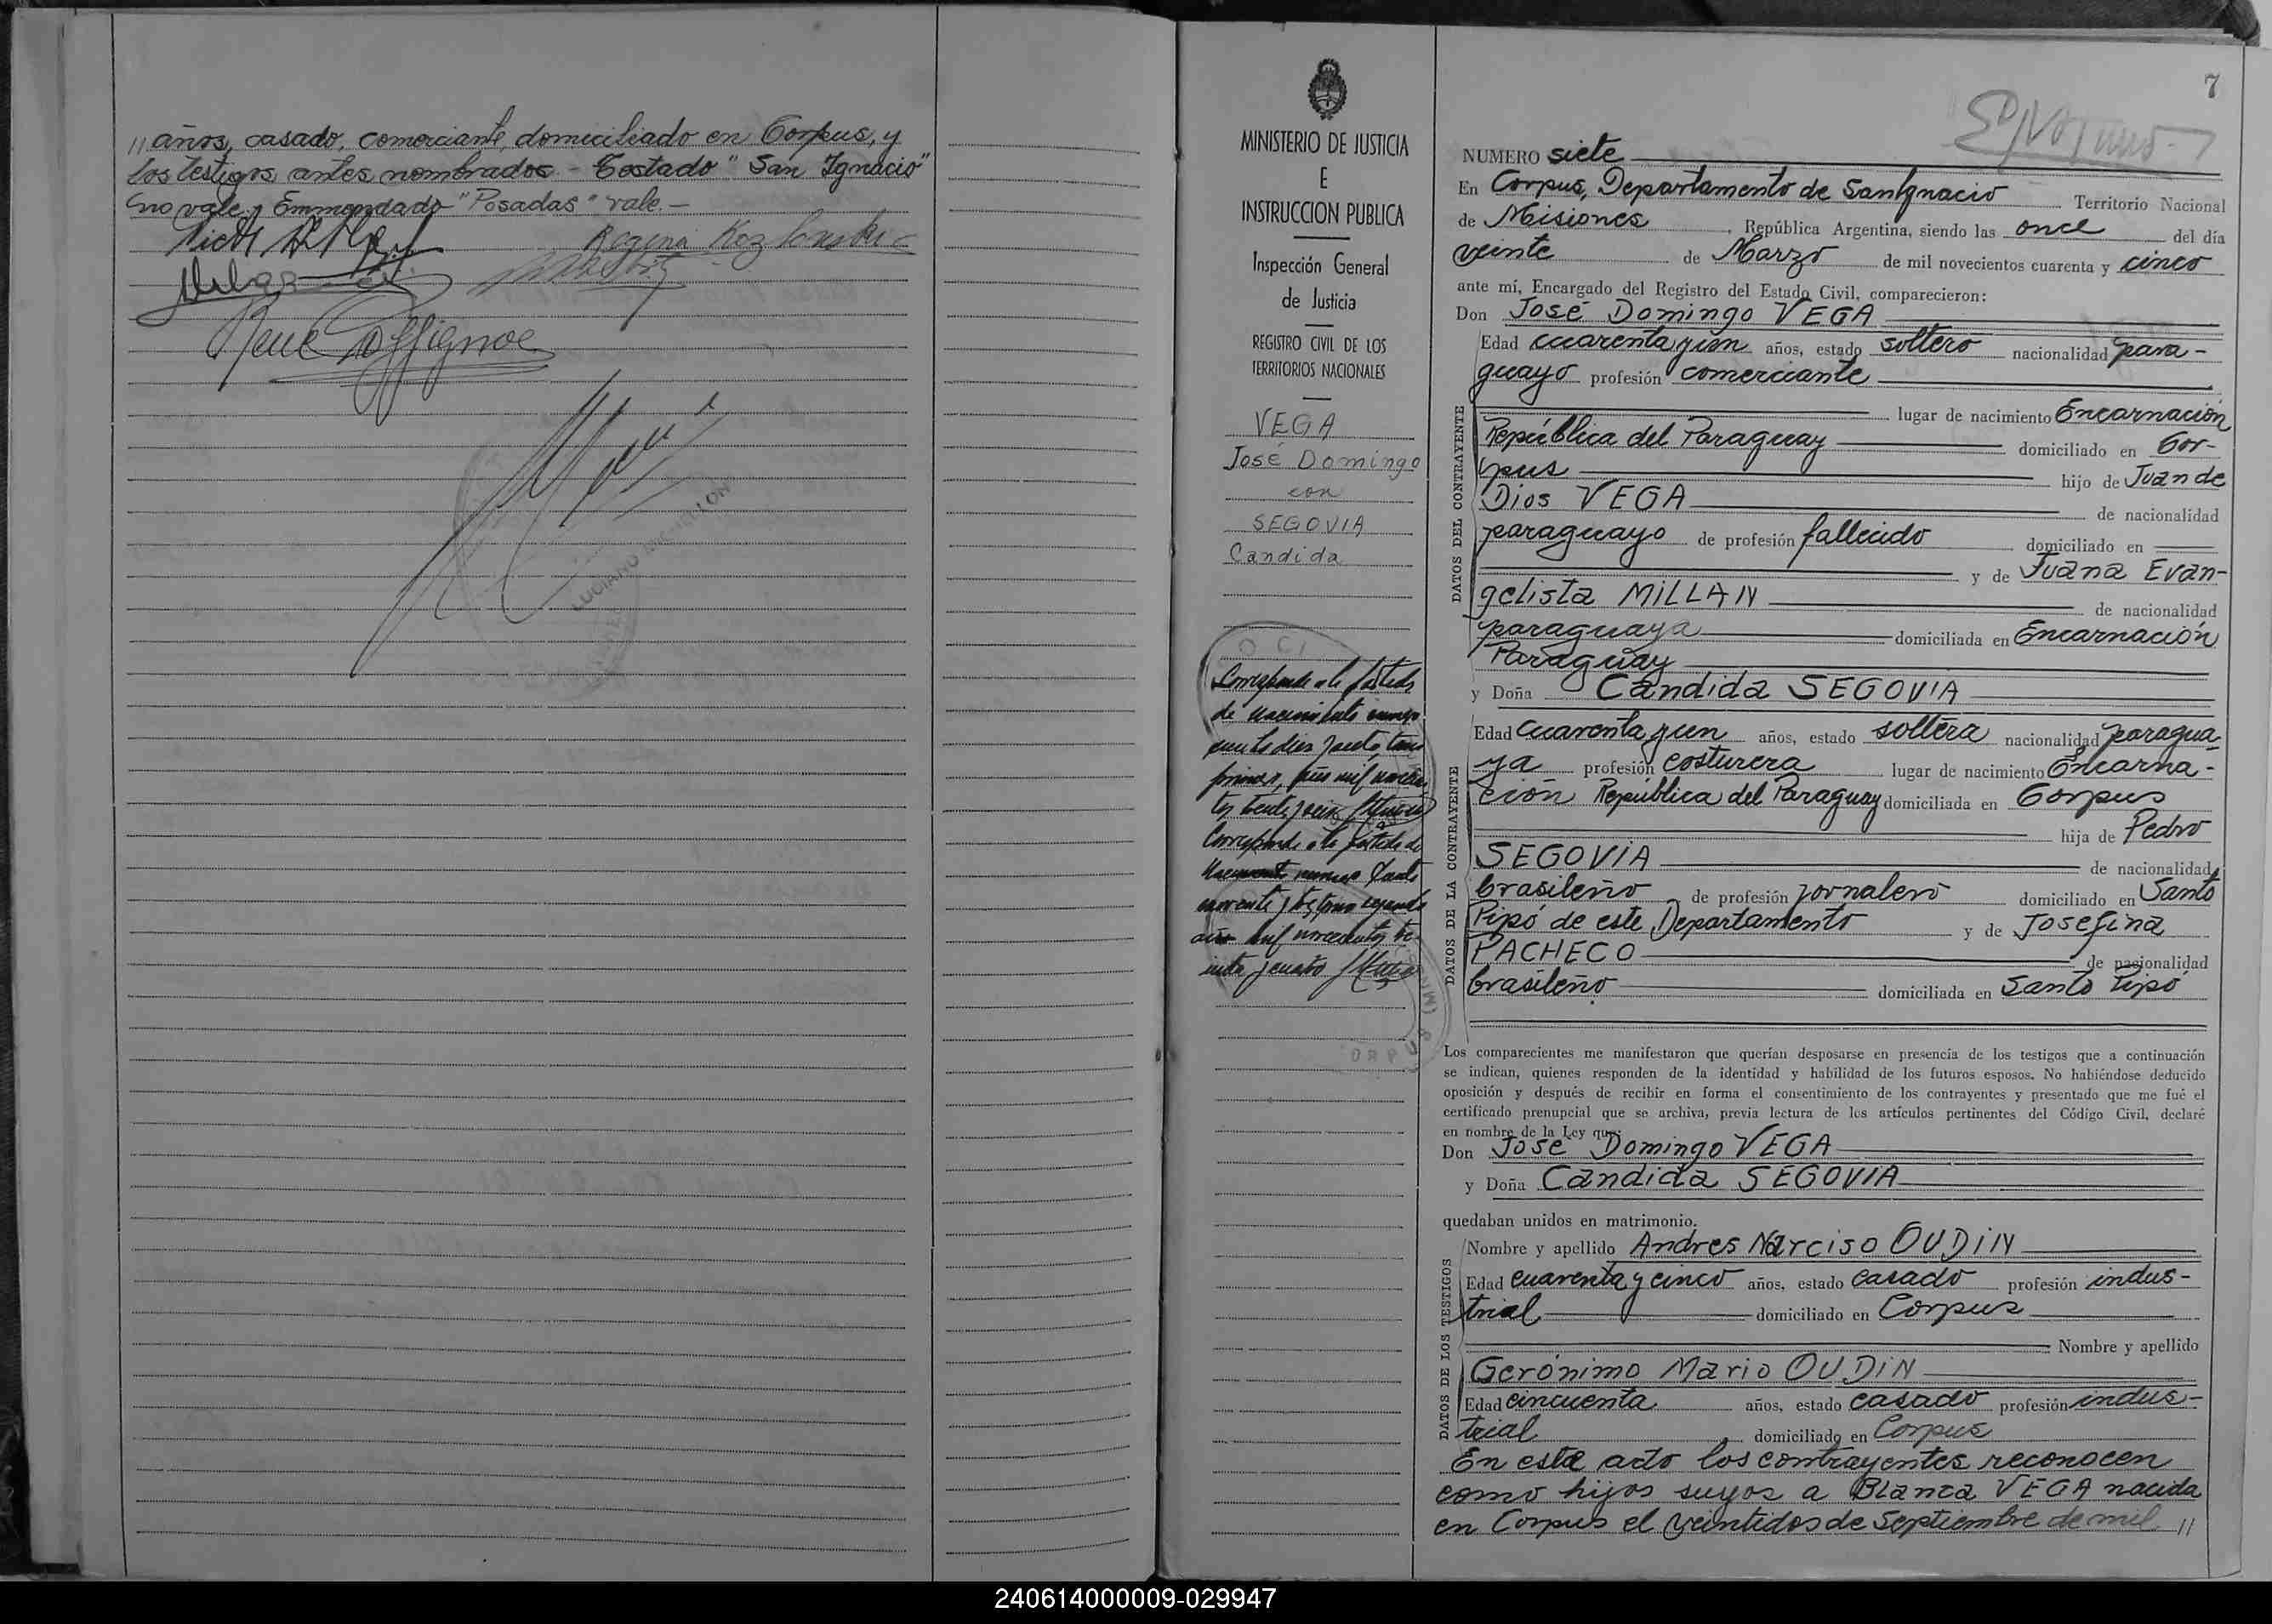 // años, casado, comerciante, domiciliado en Corpus, y
los testigos antes nombrados - Testado "San Ignacio"
no vale. Emmendado "Posadas" vale. -
Regina Kozlowski
René
LUCIANO
MINISTERIO DE JUSTICIA
E
INSTRUCCION PUBLICA
Inspección General
de Justicia
REGISTRO CIVIL DE LOS
TERRITORIOS NACIONALES
VEGA
José Domingo
con
SEGOVIA
Candida
Corresponde a la partida
de nacimiento
primero, mil
Corresponde a la partida de
Nacimiento numero
noventa y tres, tomo segundo
año mil novecientos tre-
inta y cuatro
7
NUMERO siete
En Corpus, Departamento de San Ignacio Territorio Nacional
de Misiones, República Argentina, siendo las once del día
veinte de Marzo de mil novecientos cuarenta y cinco
ante mí, Encargado del Registro del Estado Civil, comparecieron:
Don José Domingo VEGA
Edad cuarenta y un años, estado soltero nacionalidad para-
guayo profesión comerciante
lugar de nacimiento Encarnación
República del Paraguay domiciliado en Cor-
pus hijo de Juan de
Dios VEGA de nacionalidad
paraguayo de profesión fallecido domiciliado en
y de Juana Evan-
gelista MILLAN de nacionalidad
paraguaya domiciliada en Encarnación
Paraguay
y Doña Candida SEGOVIA
Edad cuarenta y un años, estado soltera nacionalidad paragua-
ya profesión costurera lugar de nacimiento Encarna-
ción República del Paraguay domiciliada en Corpus
hija de Pedro
SEGOVIA de nacionalidad
brasileño de profesión jornalero domiciliado en Santo
Pipó de este Departamento y de Josefina
PACHECO de nacionalidad
brasileño domiciliada en Santo Pipó
DATOS DEL CONTRAYENTE
DATOS DE LA CONTRAYENTE
Los comparecientes me manifestaron que querían desposarse en presencia de los testigos que a continuación
se indican, quienes responden de la identidad y habilidad de los futuros esposos. No habiéndose deducido
oposición y después de recibir en forma el consentimiento de los contrayentes y presentado que me fué el
certificado prenupcial que se archiva, previa lectura de los artículos pertinentes del Código Civil, declaré
en nombre de la Ley que:
Don José Domingo VEGA
y Doña Candida SEGOVIA
quedaban unidos en matrimonio.
Nombre y apellido Andres Narciso OUDIN
Edad cuarenta y cinco años, estado casado profesión indus-
trial domiciliado en Corpus
Nombre y apellido
Gerónimo Mario OUDIN
Edad cincuenta años, estado casado profesión indus-
trial domiciliado en Corpus
DATOS DE LOS TESTIGOS
En este acto los contrayentes reconocen
como hijos suyos a Blanca VEGA nacida
en Corpus el veintidos de Septiembre de mil //
240614000009-029947